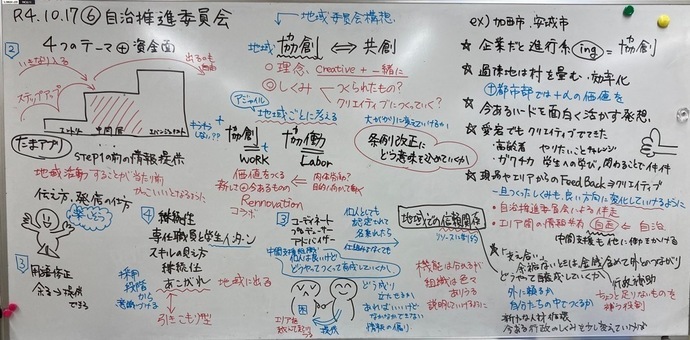 R4.10.17⑥自治推進委員会
地域委員会構想.
2
4つのテーマ⊕資金面
いきなり入る
出るのも自由
ステップアップ
エントリー
中間層
たまアプリ
step1の前の情報提供
地域活動することが当たり前
かっこいいとなるように
伝え方、発信の仕方
楽しそう
3
困る
提供
できる
地域 協創 ⇔ 共創
◎理念、creative + 一緒に
◎しくみ
つくられたもの?
クリエイティブにつくっていく?
アジャイル
地域ごとに考える
大がかりに考えていけるか
+
協創
WORK
+
協働
Labor
条例改正に
どう意味をこめていくか
価値をつくる
新しい⊕あるもの
コラボ
Rennovation
肉体労働?
目的に向けて働く
4
継続性
専任職員と学生インターン
スキルの見方
継続性
あこがれ
採用
段階
から
意識づける
地域に出る
引きこもり型
3
コーディネート
プロデューサー
アドバイザー
中間支援組織
個人は良いけど
どうやってつくって育成していくか
個人としても
認定されて
名乗れたら
仕組みもなくても
どう成り
立たせるか
あればいいけど
なかなかできない
情報の偏り
困
提供
エリアを
地域での信頼関係
リソースに寄りそう
機能は分けるが
組織は色々
ありうる
説明していけるように
ex) 加西市・安城市
☆ 企業だと進行系 ing = 協創
☆ 過疎地は村を畳む・効率化
⊕都市部では+αの価値を
☆ 今あるハードを面白く活かす発想
☆ 愛宕でもクリエイティブでできた
・高齢者 やりたいことチャレンジ
・ガクチカ 学生への学び、関わることで伴伴
☆ 現場やエリアからのFeed Back⇒クリエイティブ
一旦つくったしくみも、良い方向に変化していけるように
・自治推進委員会による伴走
・エリア間の情報共有
自走 ⇐ 自治
中間支援も他に働きかける
☆「支え合い」
余裕ないときは金銭含めて外とのつながり
どうやって醸成していくか
行政補助
外に頼るか
自分たちの中でつくるか
新たな人材・循環
今ある行政のしくみを少し変えていけるか
ちょっと足りないものを
補う役割